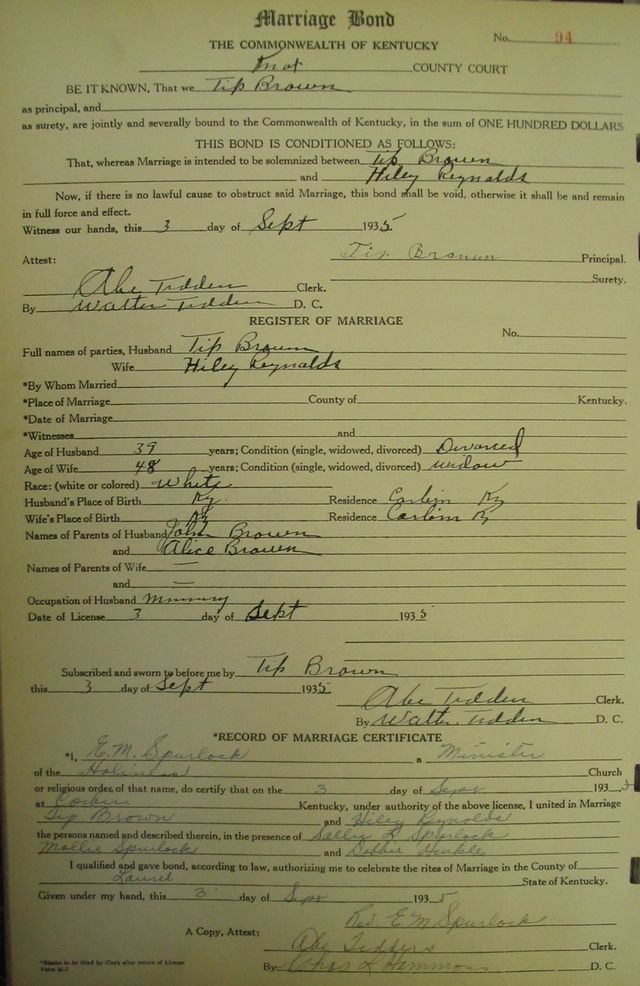 Marriage Bond
THE COMMONWEALTH OF KENTUCKY
No. 94
Knox COUNTY COURT
BE IT KNOWN, That we Tip Brown
as principal, and
as surety, are jointly and severally bound to the Commonwealth of Kentucky, in the sum of ONE HUNDRED DOLLARS
THIS BOND IS CONDITIONED AS FOLLOWS:
That, whereas Marriage is intended to be solemnized between Tip Brown
and Hiley Reynolds
Now, if there is no lawful cause to obstruct said Marriage, this bond shall be void, otherwise it shall be and remain
in full force and effect.
Witness our hands, this 3 day of Sept 1935
Attest: Tip Brown Principal.
Surety.
Abe Tedders Clerk.
By Walter Tedders D. C.
REGISTER OF MARRIAGE
No.
Full names of parties, Husband Tip Brown
Wife Hiley Reynolds
*By Whom Married
*Place of Marriage County of Kentucky.
*Date of Marriage
*Witnesses and
Age of Husband 39 years; Condition (single, widowed, divorced) Divorced
Age of Wife 48 years; Condition (single, widowed, divorced) widow
Race: (white or colored) White
Husband's Place of Birth Ky. Residence Corbin Ky
Wife's Place of Birth Ky Residence Corbin Ky
Names of Parents of Husband John Brown
and Alice Brown
Names of Parents of Wife —
and —
Occupation of Husband Minning
Date of License 3 day of Sept 1935
Subscribed and sworn to before me by Tip Brown
this 3 day of Sept 1935
Abe Tedders Clerk.
By Walter Tedders D. C.
*RECORD OF MARRIAGE CERTIFICATE
*I, E. M. Spurlock a Minister
of the Holiness Church
or religious order of that name, do certify that on the 3 day of Sept 1935
at Corbin Kentucky, under authority of the above license, I united in Marriage
Tip Brown and Hiley Reynolds
the persons named and described therein, in the presence of Sallie L Spurlock
Mollie Spurlock and Debbie Hinkle
I qualified and gave bond, according to law, authorizing me to celebrate the rites of Marriage in the County of
Laurel State of Kentucky.
Given under my hand, this 3 day of Sept 1935
Rev. E. M Spurlock
A Copy, Attest: Abe Tedders Clerk.
By Chas L Hammons D. C.
*Blanks to be filled by Clerk after return of License
Form M-7